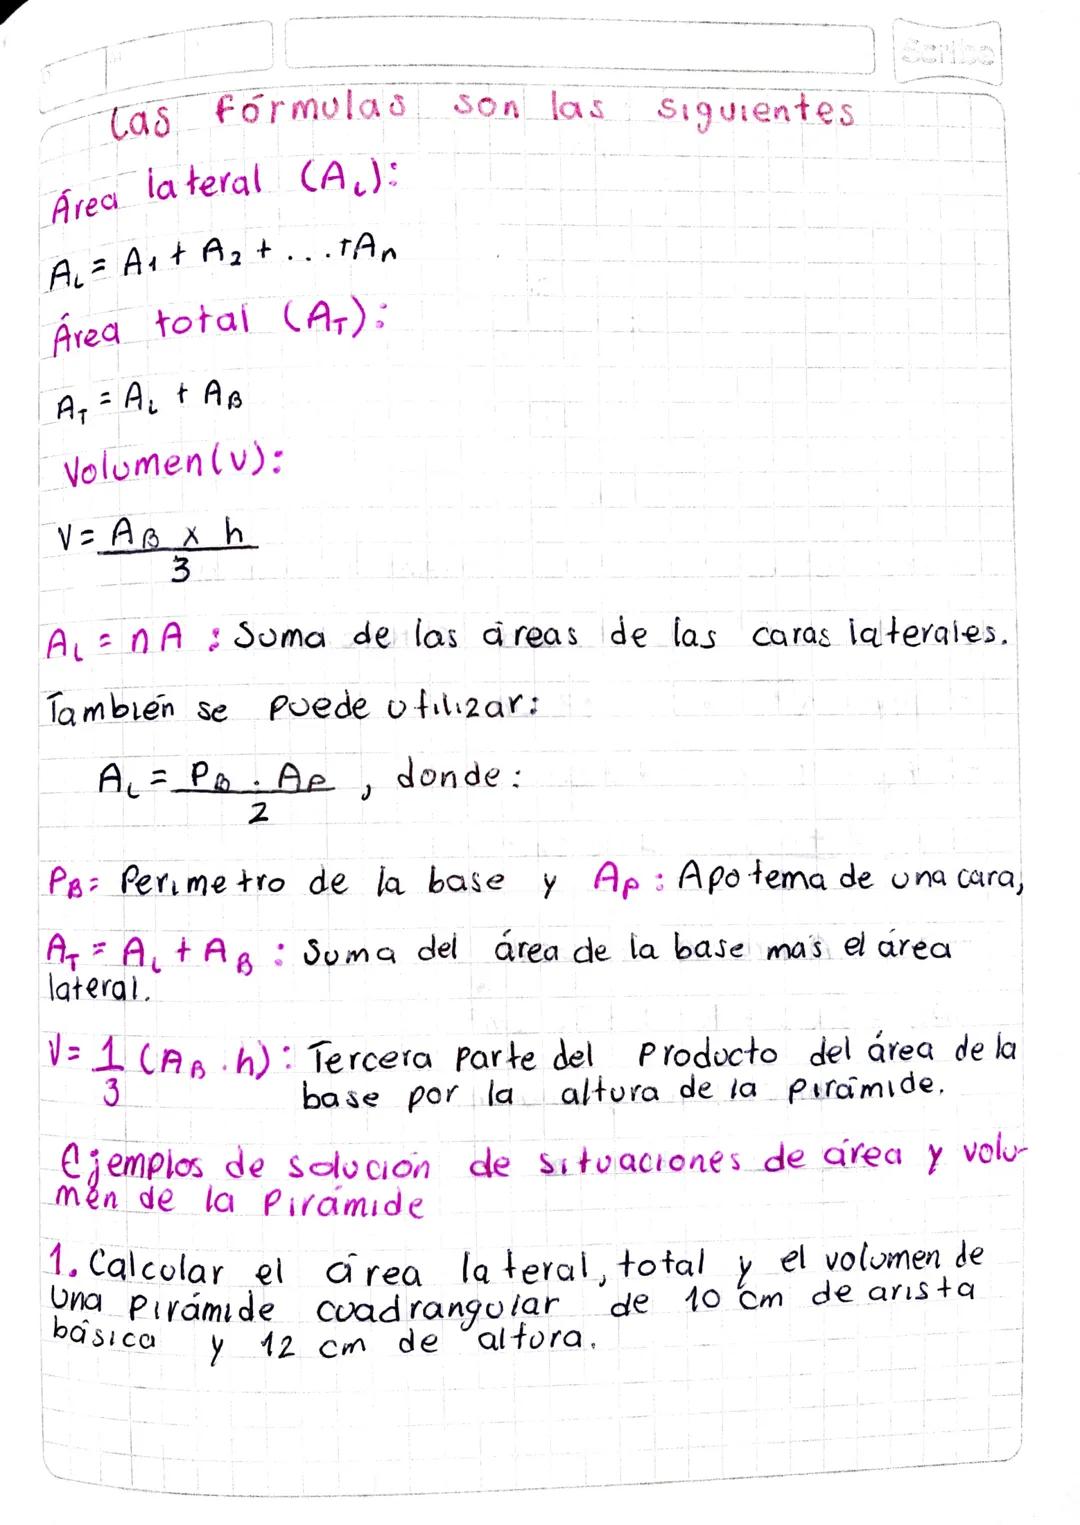 Scribe
Las fórmulas son las siguientes
Área lateral (AL):
AL = A1 + A2 + ...+An
Área total (AT):
AT = AL + AB
Volumen(v):
V = AB x h
3
AL = nA : Suma de las áreas de las caras laterales.
También se puede utilizar:
AL = PB . AP , donde:
2
PB: Perimetro de la base y Ap : Apotema de una cara,
AT = AL + AB : Suma del área de la base más el área
lateral.
V= 1 (AB . h): Tercera parte del Producto del área de la
3 base por la altura de la pirámide.
Ejemplos de solución de situaciones de área y volu-
mén de la Pirámide
1. Calcular el área lateral, total y el volumen de
una Pirámide cuadrangular de 10 cm de arista
básica y 12 cm de altura.